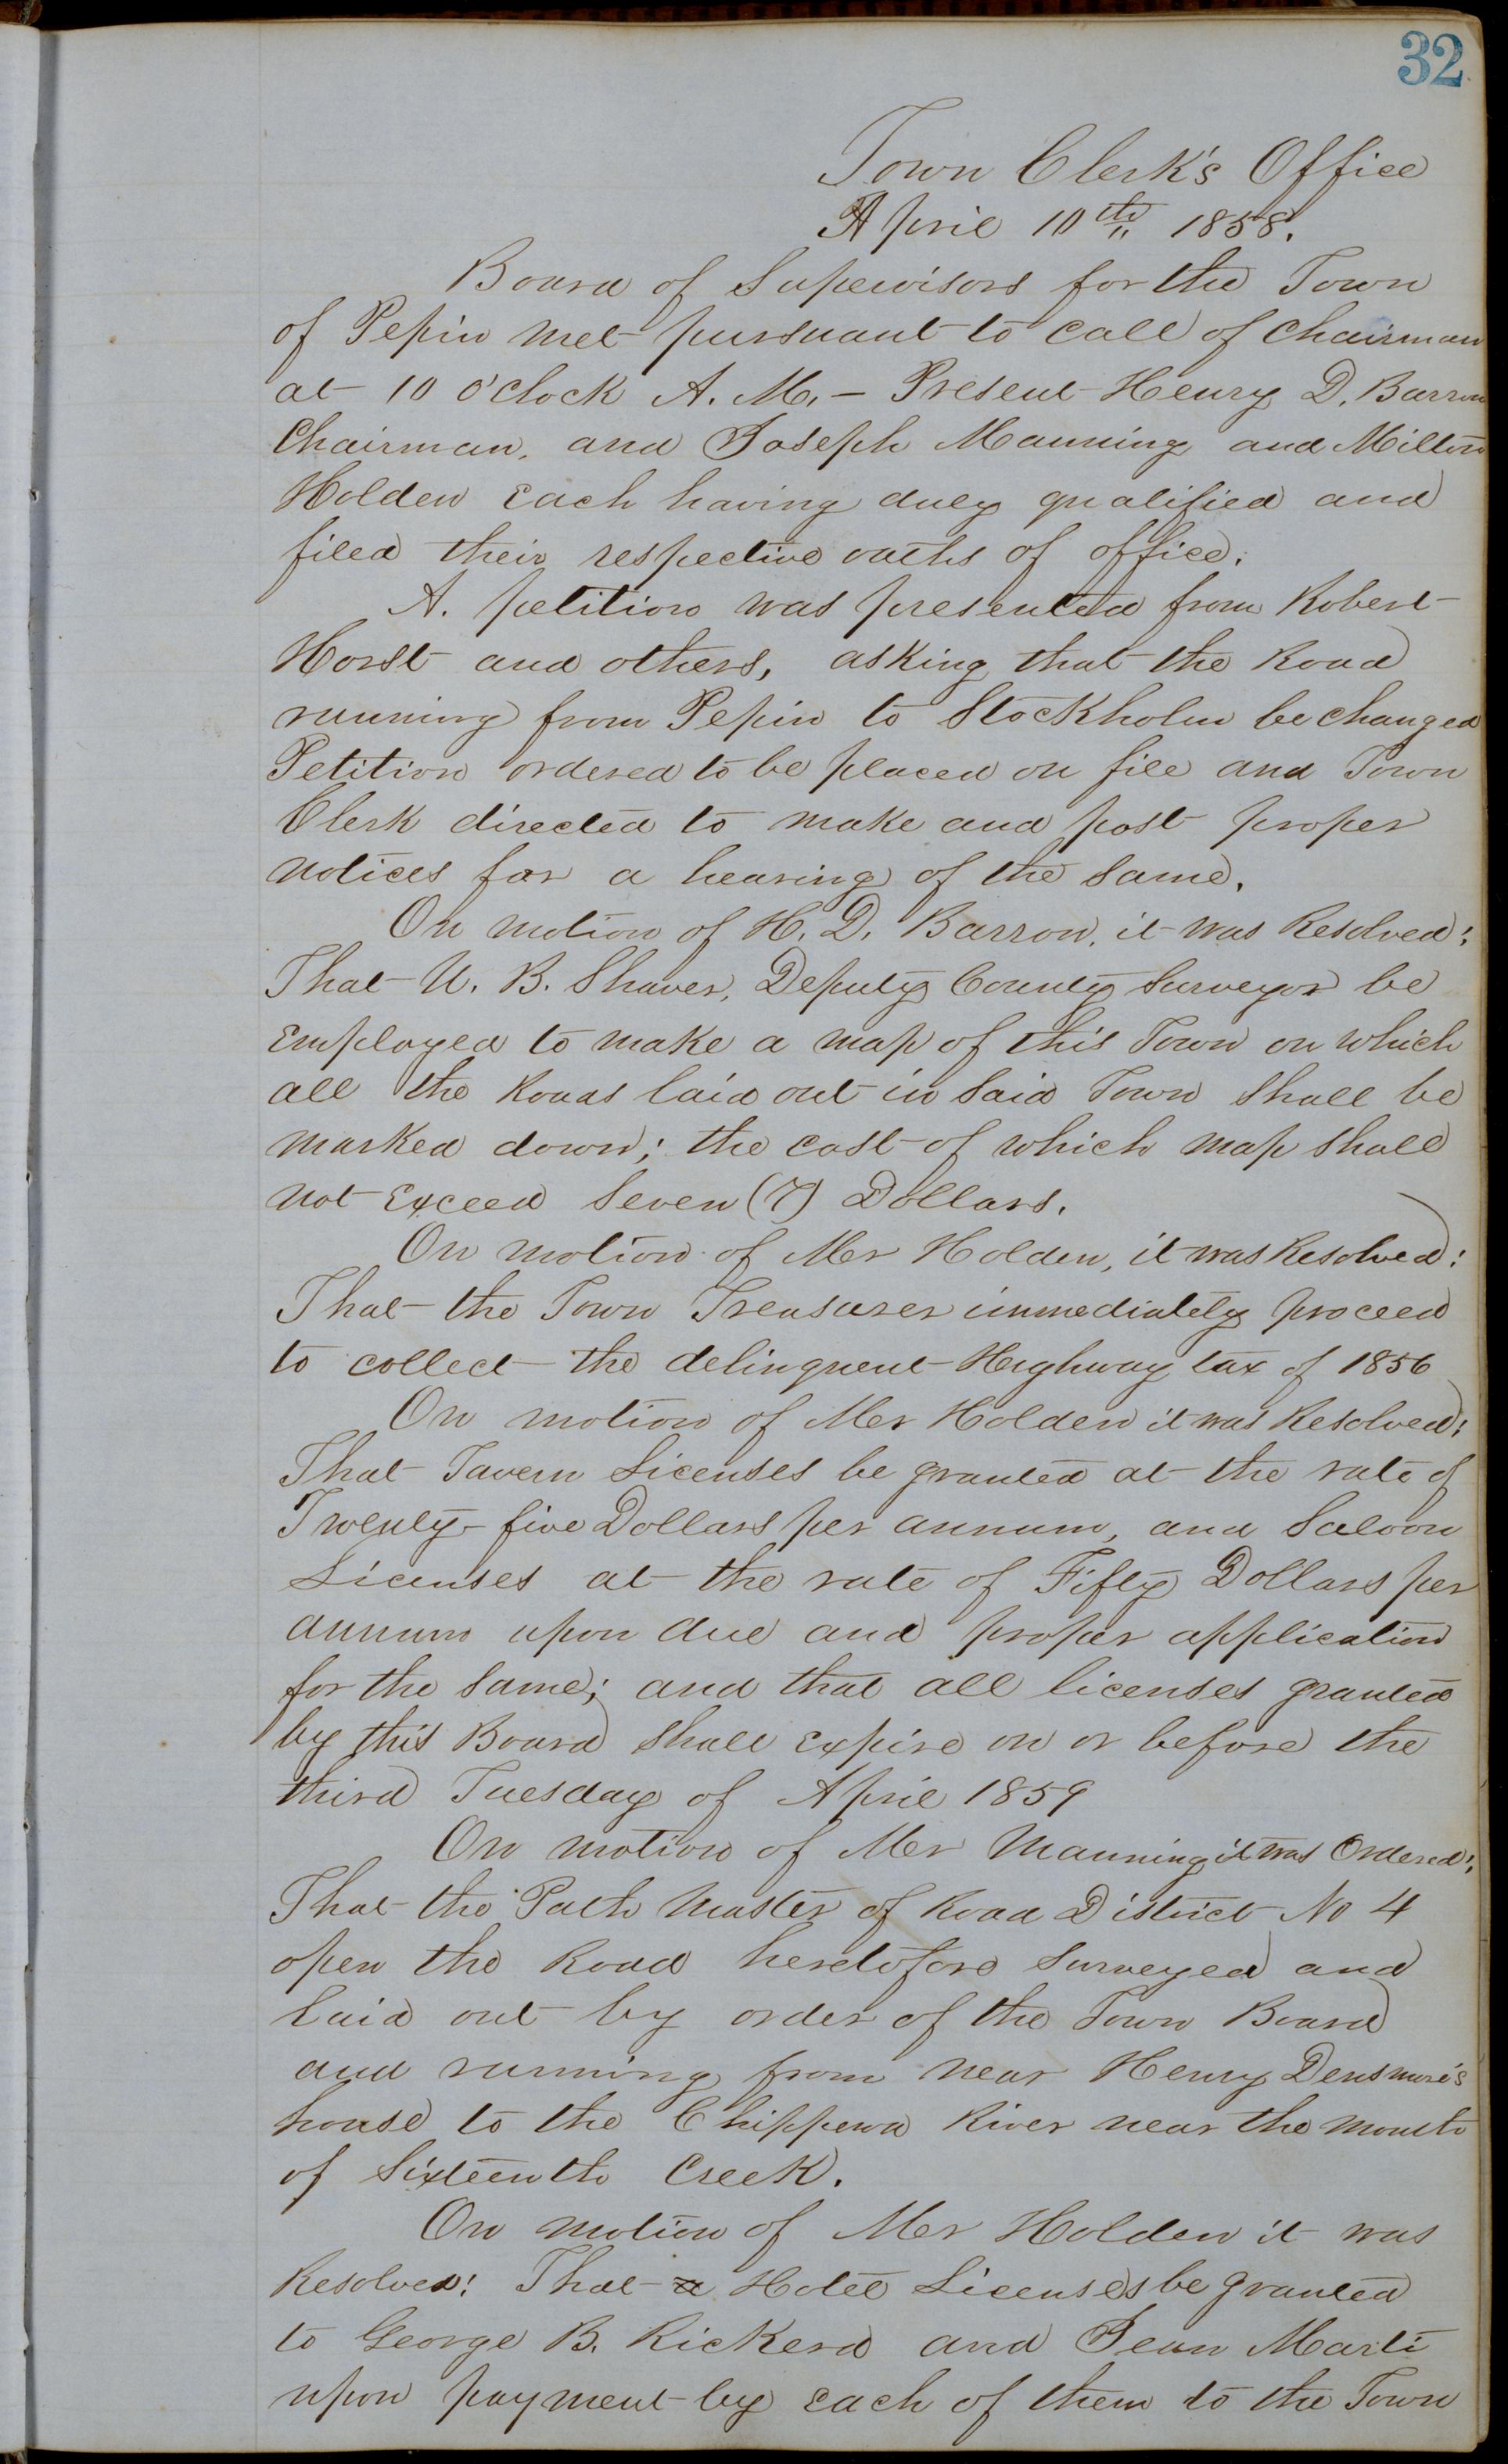 32
Town Clerk's Office
April 10th 1858.
Board of Supervisors for the Town
of Pepin met pursuant to call of Chairman
at 10 o'clock A. M. – Present Henry D. Barron
Chairman, and Joseph Manning and Milton
Holden Each having duly qualified and
filed their respective oaths of office.
A. petition was presented from Robert
Horst and others, asking that the Road
running from Pepin to Stockholm be changed
Petition ordered to be placed on file and Town
Clerk directed to make and post proper
notices for a hearing of the same.
On motion of H. D. Barron, it was Resolved:
That U. B. Shaver, Deputy County Surveyor be
Employed to make a map of this Town on which
all the Roads laid out in said Town shall be
marked down; the cost of which map shall
not Exceed Seven (7) Dollars.
On motion of Mr Holden, it was Resolved:
That the Town Treasurer immediately proceed
to collect the delinquent Highway tax of 1856
On motion of Mr Holden it was Resolved:
That Tavern Licenses be granted at the rate of
Twenty-five Dollars per annum, and Saloon
Licenses at the rate of Fifty Dollars per
annum upon due and proper application
for the same; and that all licenses granted
by this Board shall Expire on or before the
third Tuesday of April 1859
On motion of Mr Manning it was Ordered:
That the Path Master of Road District No 4
open the Road heretofore surveyed and
laid out by order of the Town Board
and running from near Henry Densmore's
house to the Chippewa River near the mouth
of Sixteenth Creek.
On motion of Mr Holden it was
Resolved: That a Hotel Licenses be granted
to George B. Rickerd and Jean Marti
upon payment by Each of them to the Town